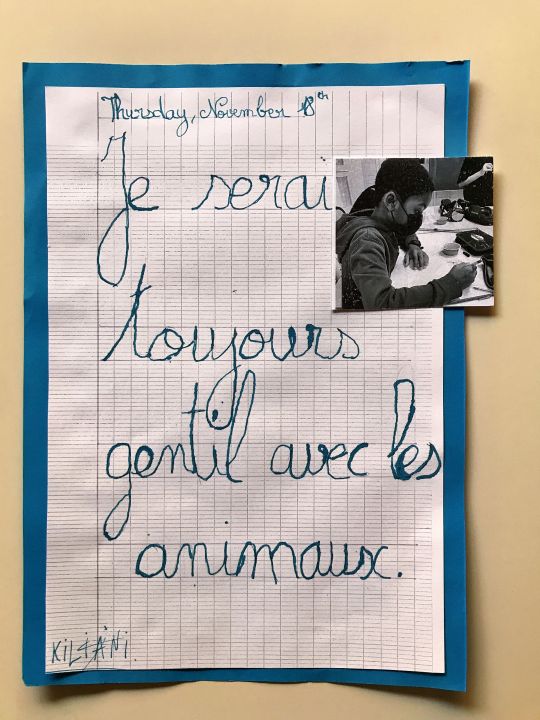 Thursday, November 18th
Je serai
toujours
gentil avec les
animaux.
KiLiANi.